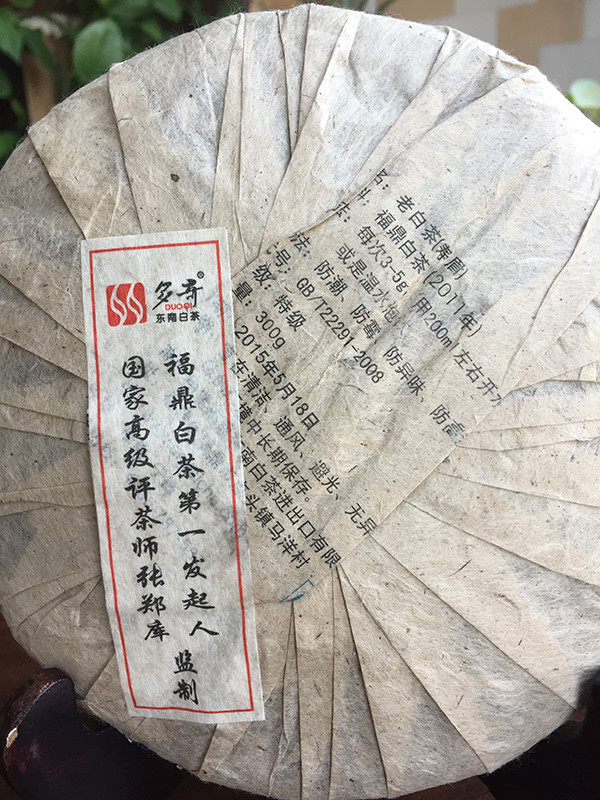 多奇®
DUOQI
东南白茶
福鼎白茶第一发起人
国家高级评茶师张郑库
监制
名：老白茶(寿眉)
料：福鼎白茶(2011年)
法：每次3-5g，用200ml左右开水
或是温水泡
法：防潮、防霉、防异味、防高
号：GB/T22291-2008
级：特级
量：300g
2015年5月18日
在清洁、通风、避光、无异
境中长期保存。
南白茶进出口有限
头镇马洋村